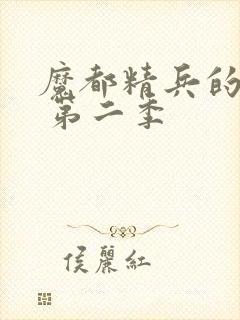 魔都精兵的
第二季
侯麗紅